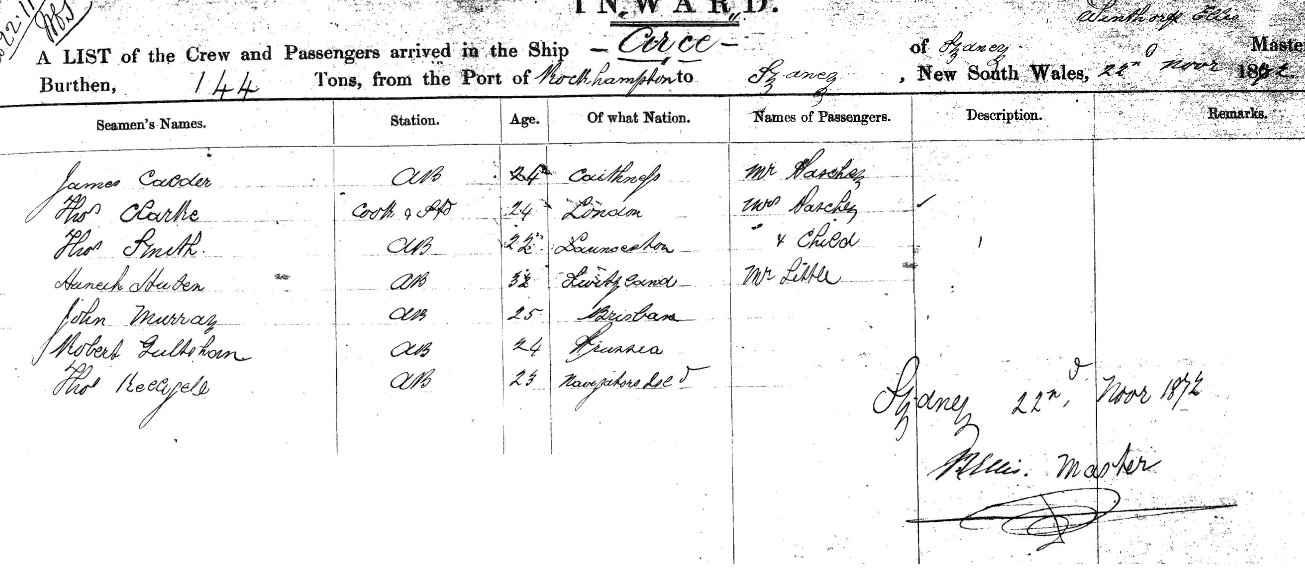 INWARD.
Winthorp Ellis
A LIST of the Crew and Passengers arrived in the Ship – Circe – of Sydney Master
Burthen, 144 Tons, from the Port of Rockhampton to Sydney, New South Wales, 22nd Novr 1872.
Seamen's Names. Station. Age. Of what Nation. Names of Passengers. Description. Remarks.
James Calder AB 24 Caithness Mr
Thos Clarke Cook & Std 24 London Mrs
Thos Smith. AB 22 Launceston " & Child
AB 32 Switzland Mr Little
John Murray AB 25 Brisban
Robert AB 24 Prussia
Thos AB 23 Navegators Isld
Sydney 22nd, Novr 1872
Ellis. Master